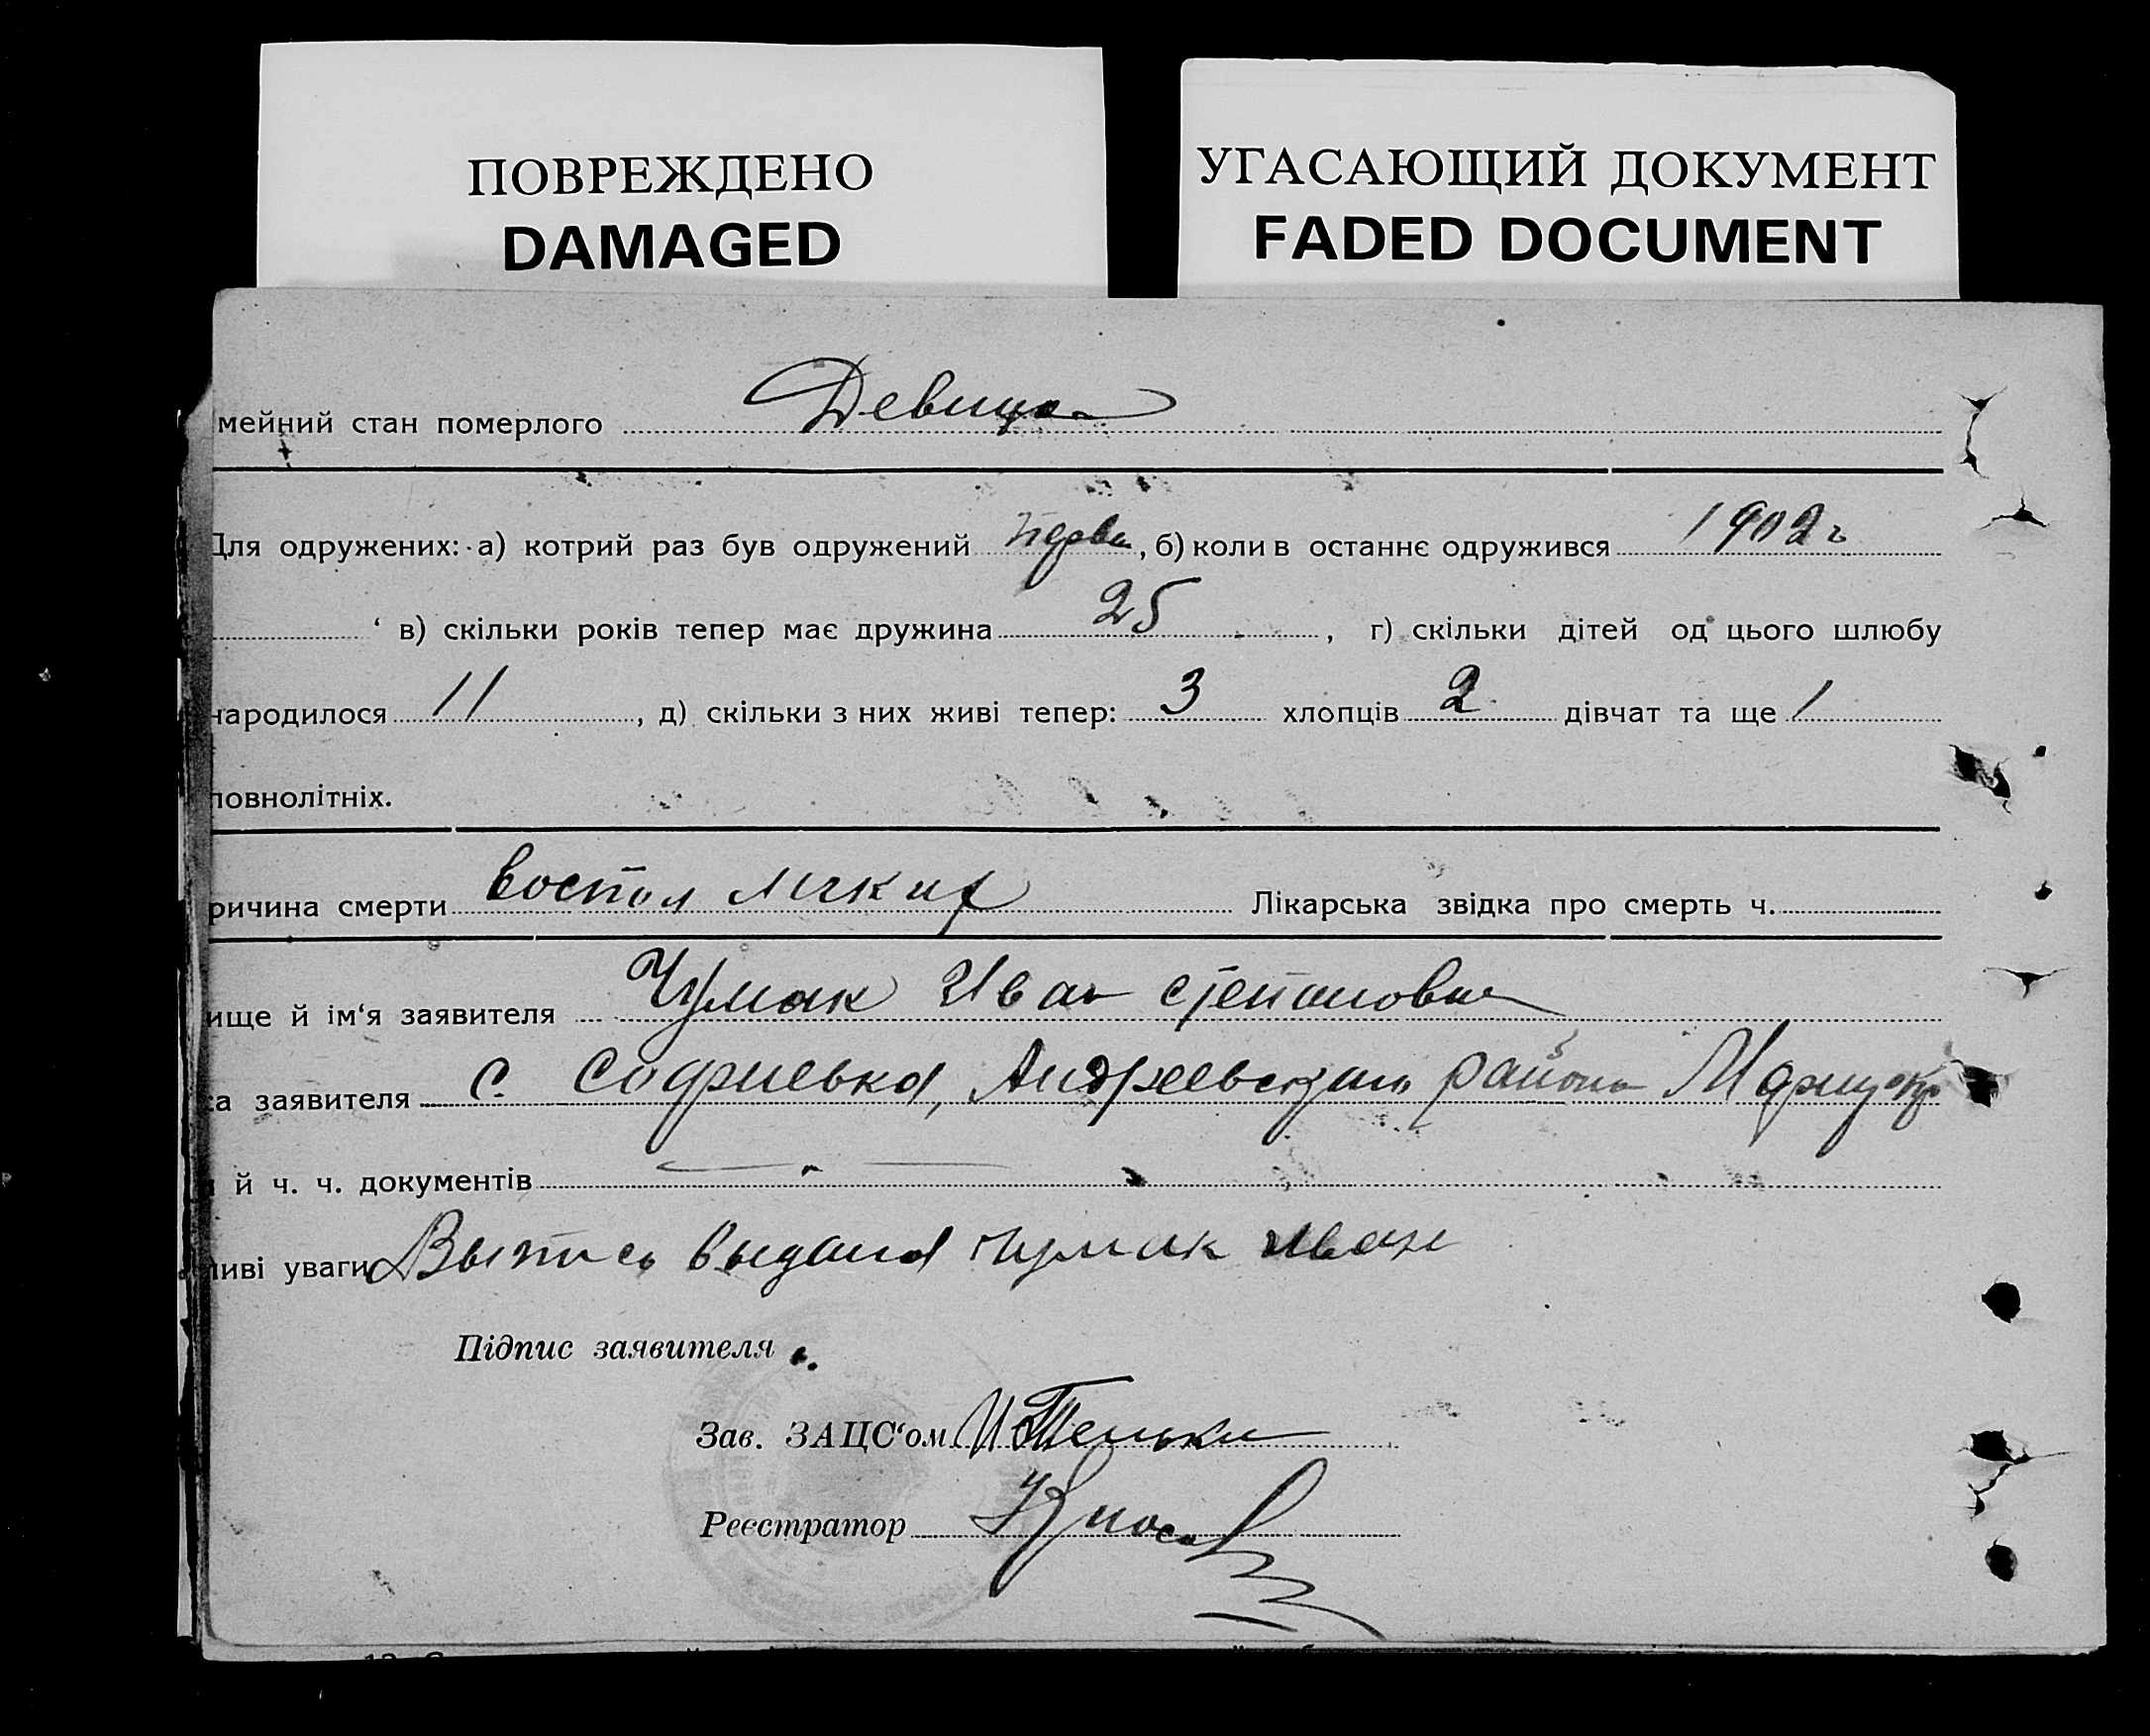 ПОВРЕЖДЕНО
DAMAGED
УГАСАЮЩИЙ ДОКУМЕНТ
FADED DOCUMENT
мейний стан померлого Девица
Для одружених: а) котрий раз був одружений перви, б) коли в останнє одружився 1902 г
в) скільки років тепер має дружина 25, г) скільки дітей од цього шлюбу
народилося 11, д) скільки з них живі тепер: 3 хлопців 2 дівчат та ще 1
повнолітніх.
ричина смерти воспол легких Лікарська звідка про смерть ч.
ище й ім'я заявителя Чумак Иван Степанович
са заявителя с. Софиевка, Андреевского района Мариуп
й ч. ч. документів —
ливі уваги Выпись выдана Чумак Иван
Підпис заявителя
Зав. ЗАЦС'ом
Реєстратор